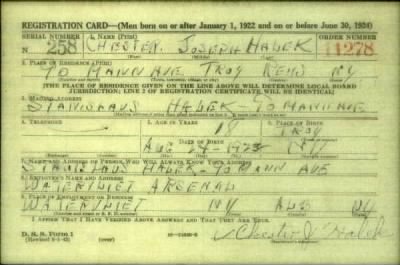 REGISTRATION CARD—(Men born on or after January 1, 1922 and on or before June 30, 1924)
SERIAL NUMBER 1. NAME (Print) ORDER NUMBER
N 258 CHESTER JOSEPH HALEK 11278
(First) (Middle) (Last)
2. PLACE OF RESIDENCE (Print)
70 MANN AVE TROY RENS NY
[THE PLACE OF RESIDENCE GIVEN ON THE LINE ABOVE WILL DETERMINE LOCAL BOARD
JURISDICTION; LINE 2 OF REGISTRATION CERTIFICATE WILL BE IDENTICAL]
3. MAILING ADDRESS
STANISLAUS HALEK 70 MANN AVE
4. TELEPHONE 5. AGE IN YEARS 6. PLACE OF BIRTH
18 TROY
DATE OF BIRTH
AUG 24-1923 NY
7. NAME AND ADDRESS OF PERSON WHO WILL ALWAYS KNOW YOUR ADDRESS
STANISLAUS HALEK-70 MANN AVE
8. EMPLOYER'S NAME AND ADDRESS
WATERVLIET ARSENAL
9. PLACE OF EMPLOYMENT OR BUSINESS
WATERVLIET NY NY
I AFFIRM THAT I HAVE VERIFIED ABOVE ANSWERS AND THAT THEY ARE TRUE.
D. S. S. Form 1
(over) Chester J Halek